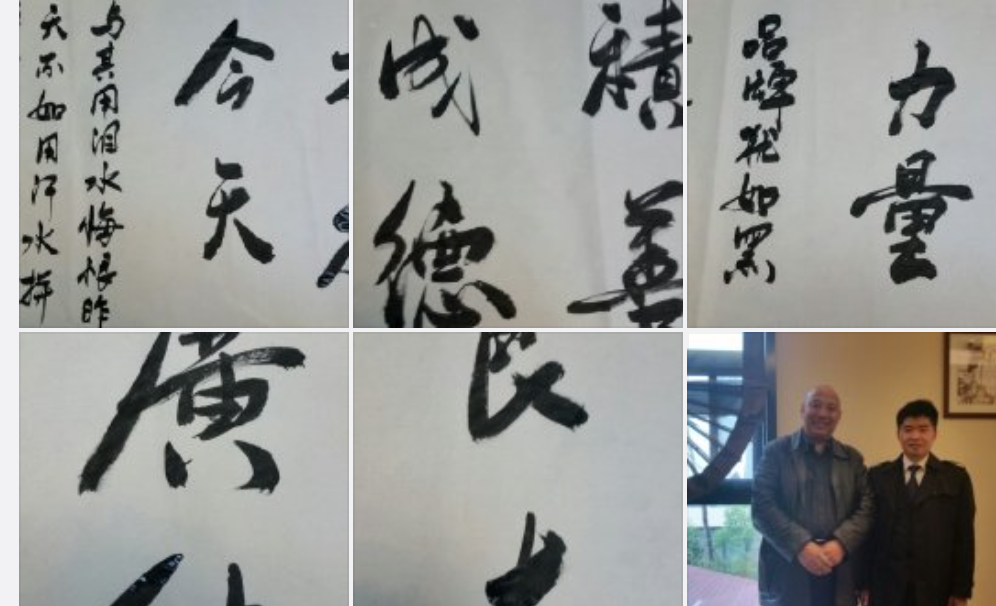 今天
与其用泪水悔恨昨
天不如用汗水拼
積善
成德
力量
品牌犹如黑
廣